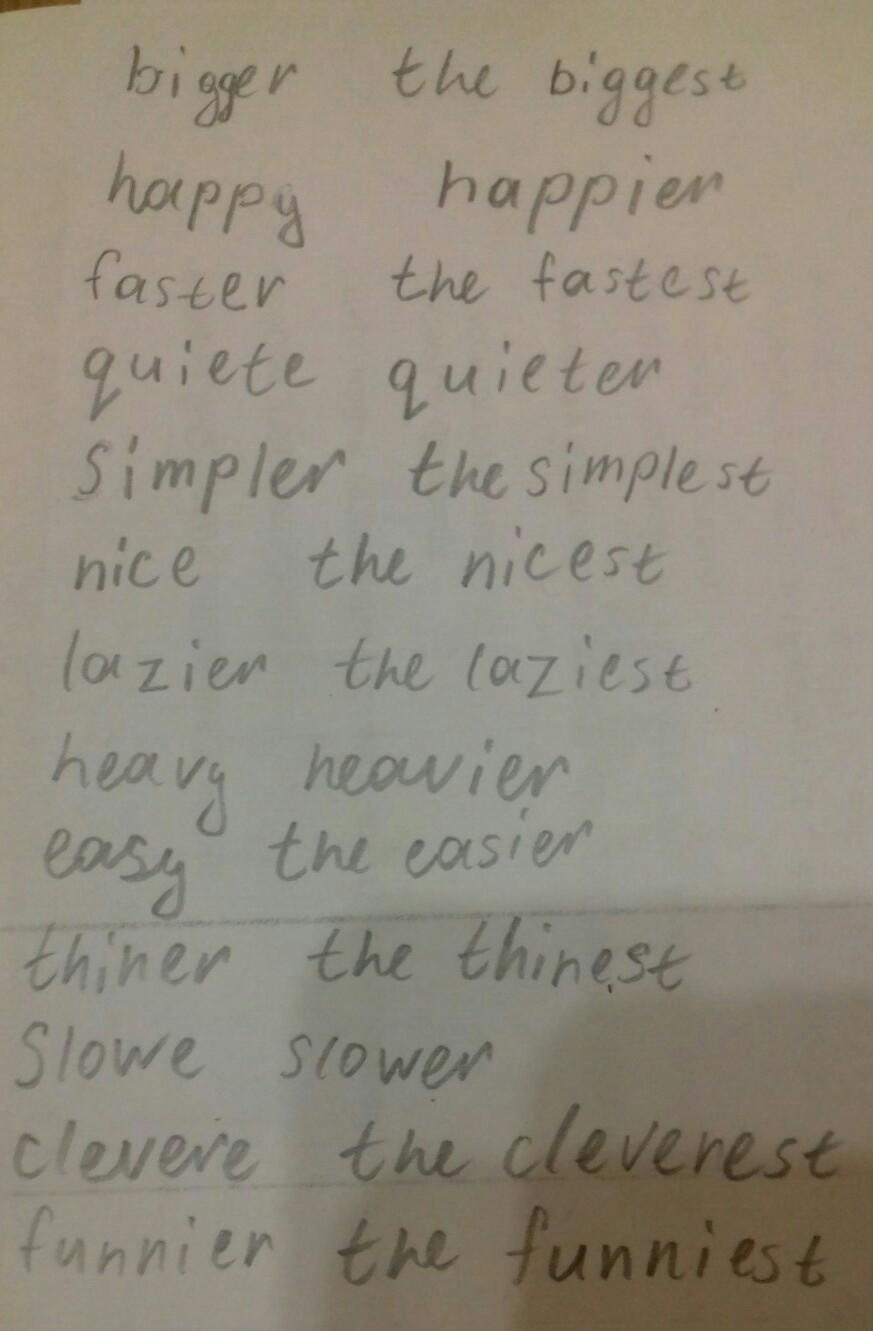 bigger the biggest
happy happier
faster the fastest
quiete quieter
Simpler the simplest
nice the nicest
lazier the laziest
heavy heavier
easy the easier
thiner the thinest
Slowe slower
clevere the cleverest
funnier the funniest